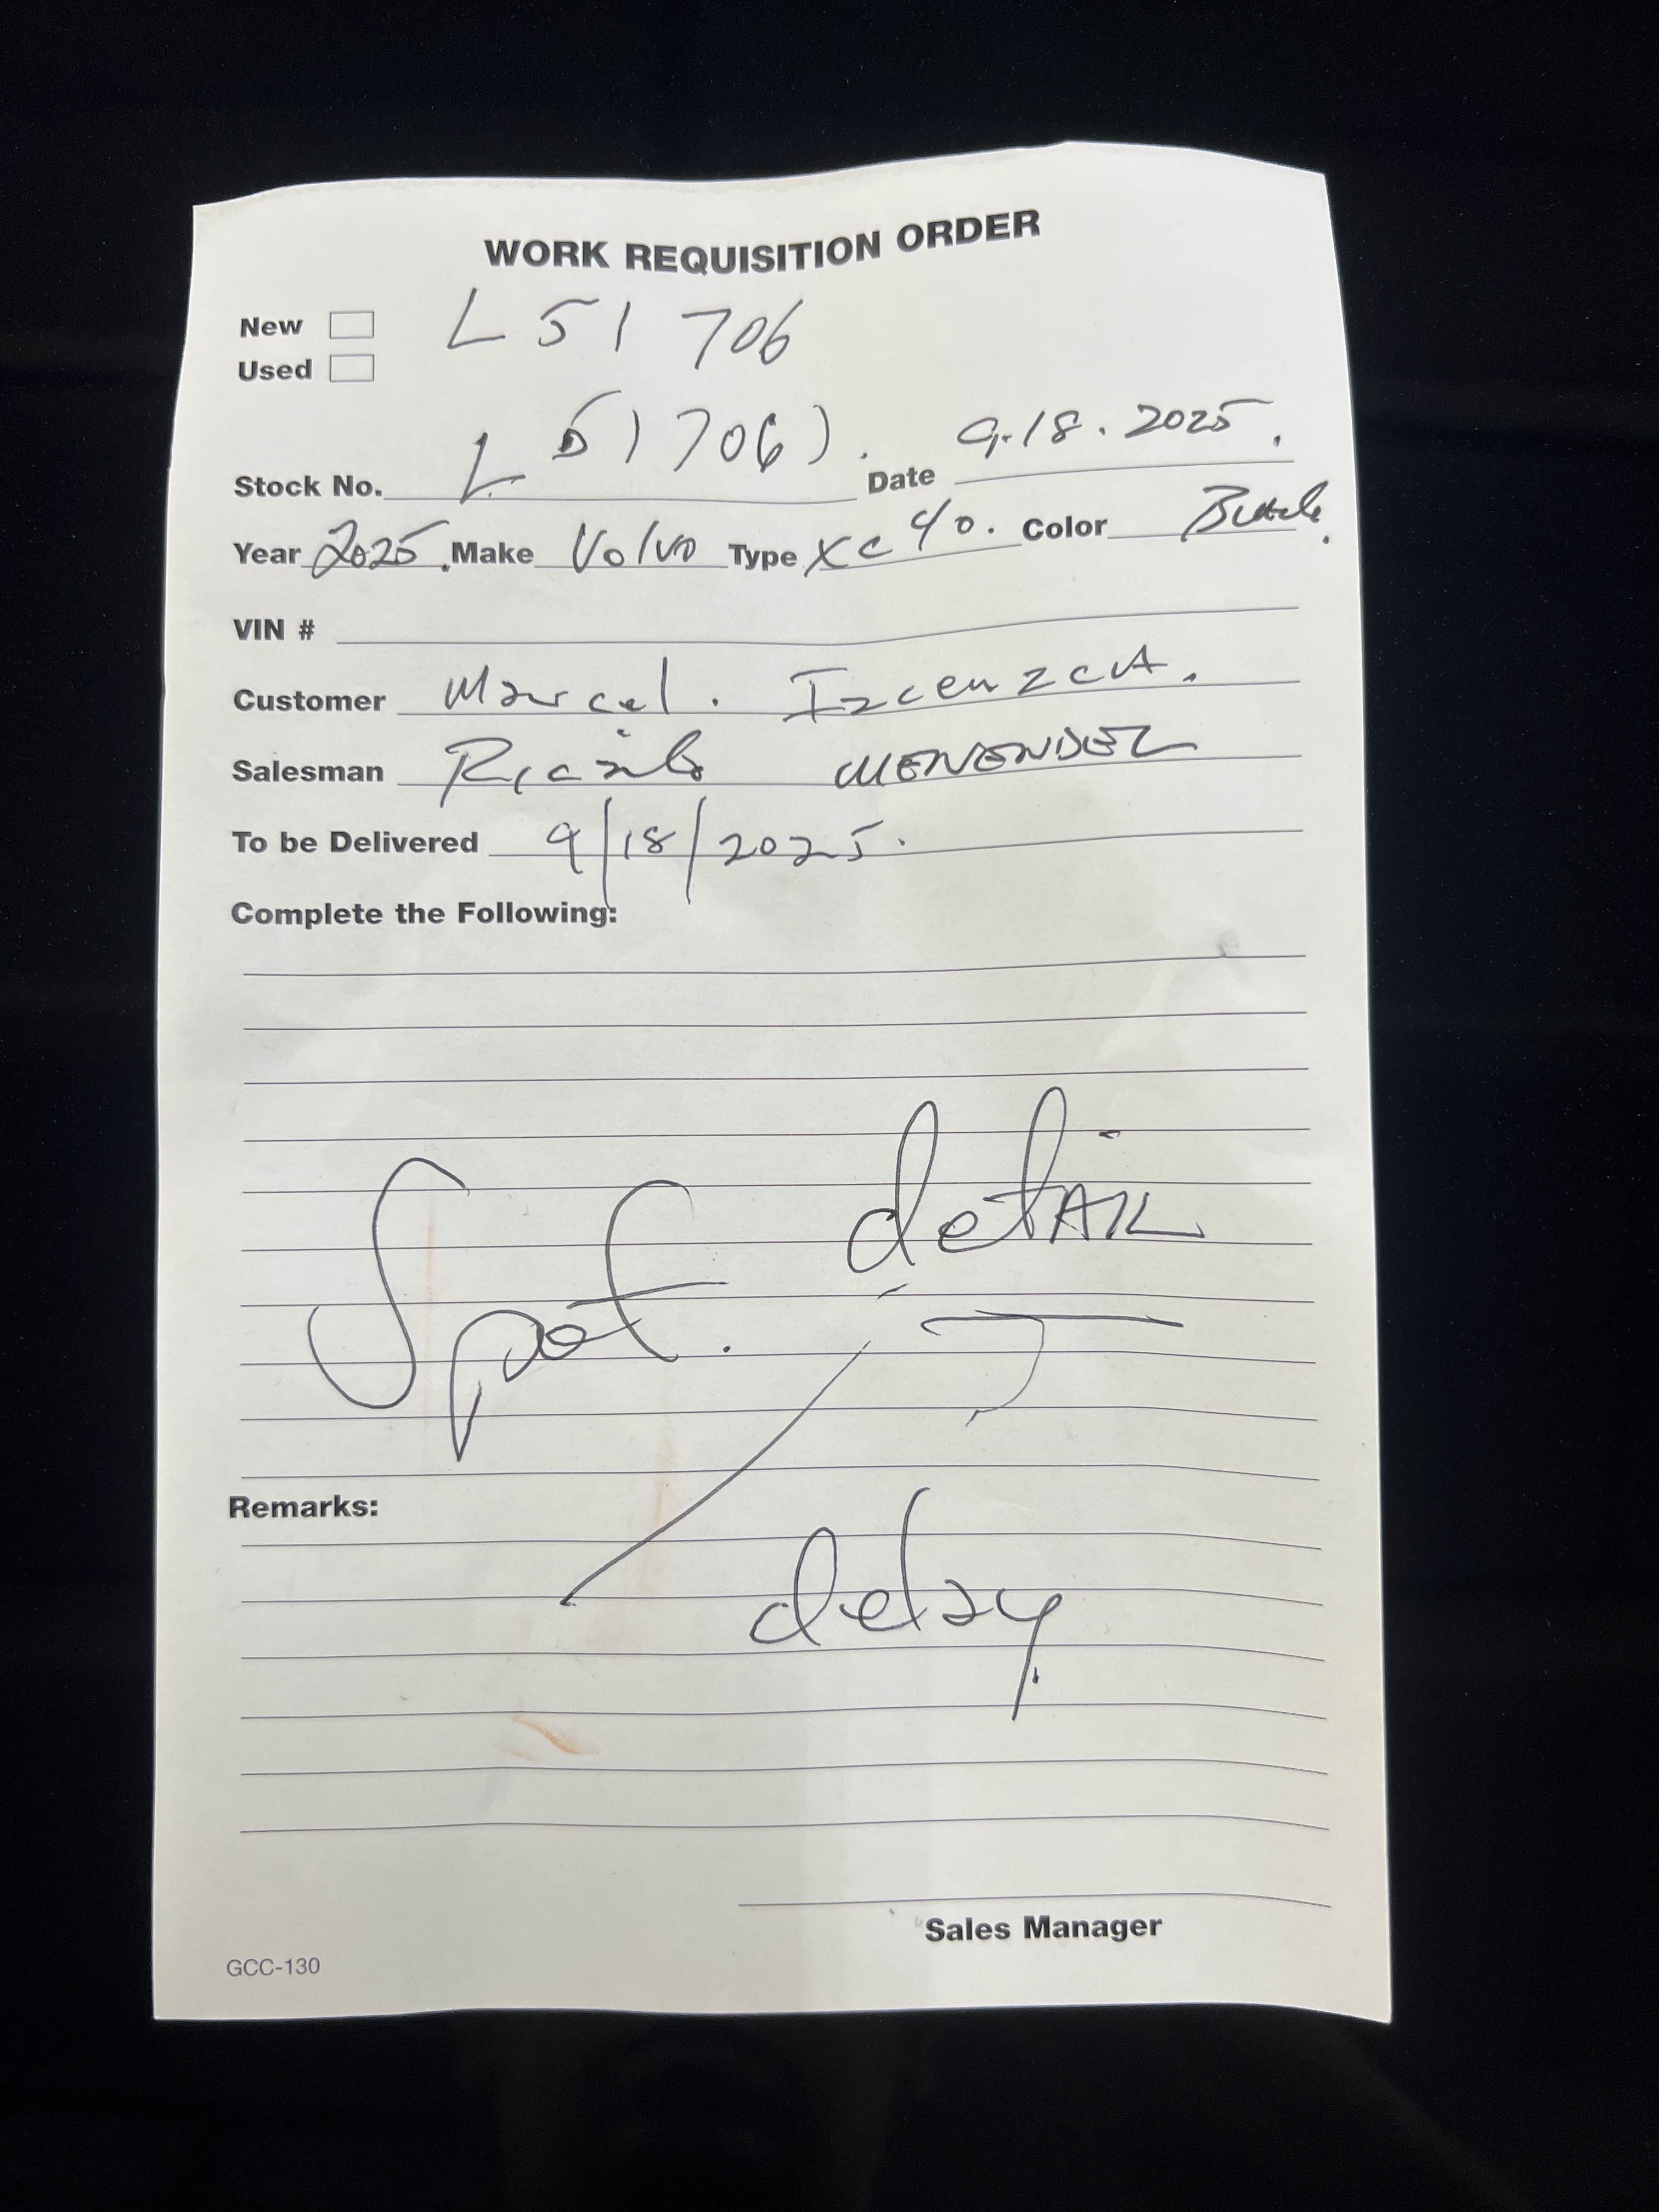 WORK REQUISITION ORDER
New L 51 706
Used
Stock No. L 51706). Date 9.18.2025.
Year 2025. Make Volvo Type XC 40. Color
VIN #
Customer Marcel.
Salesman MENENDEZ
To be Delivered 9/18/2025.
Complete the Following:
Spot. detAIL
Remarks:
delay
Sales Manager
GCC-130